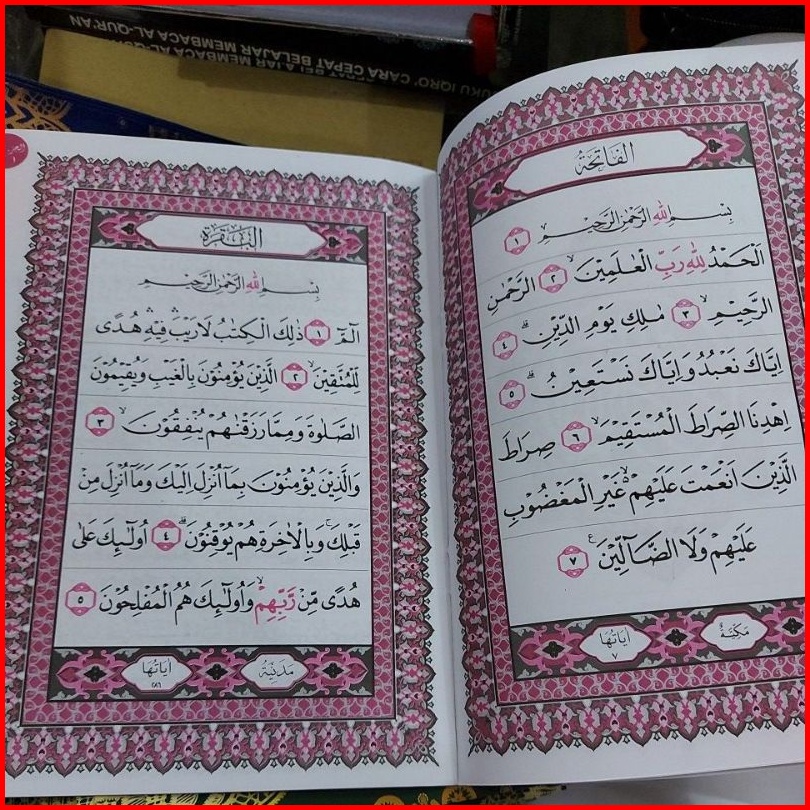 BUKU IQRO' CARA CEPAT BELAJAR MEMBACA AL-QUR'AN
CEPAT BELAJAR MEMBACA AL-QUR'AN
الفَاتِحَةُ
بِسْمِ اللّٰهِ الرَّحْمٰنِ الرَّحِيْمِ ١
اَلْحَمْدُ لِلّٰهِ رَبِّ الْعٰلَمِيْنَۙ ٢ الرَّحْمٰنِ
الرَّحِيْمِۙ ٣ مٰلِكِ يَوْمِ الدِّيْنِۗ ٤
اِيَّاكَ نَعْبُدُ وَاِيَّاكَ نَسْتَعِيْنُۗ ٥
اِهْدِنَا الصِّرَاطَ الْمُسْتَقِيْمَۙ ٦ صِرَاطَ
الَّذِيْنَ اَنْعَمْتَ عَلَيْهِمْ ەۙ غَيْرِ الْمَغْضُوْبِ
عَلَيْهِمْ وَلَا الضَّاۤلِّيْنَࣖ ٧
مَكِيَّةٌ
اٰيَاتُهَا
٧
البَقَرَة
بِسْمِ اللّٰهِ الرَّحْمٰنِ الرَّحِيْمِ
الۤمّۤ ١ ذٰلِكَ الْكِتٰبُ لَا رَيْبَۛ فِيْهِۛ هُدًى
لِّلْمُتَّقِيْنَۙ ٢ الَّذِيْنَ يُؤْمِنُوْنَ بِالْغَيْبِ وَيُقِيْمُوْنَ
الصَّلٰوةَ وَمِمَّا رَزَقْنٰهُمْ يُنْفِقُوْنَۙ ٣
وَالَّذِيْنَ يُؤْمِنُوْنَ بِمَآ اُنْزِلَ اِلَيْكَ وَمَآ اُنْزِلَ مِنْ
قَبْلِكَۚ وَبِالْاٰخِرَةِ هُمْ يُوْقِنُوْنَۗ ٤ اُولٰۤىِٕكَ عَلٰى
هُدًى مِّنْ رَّبِّهِمْۙ وَاُولٰۤىِٕكَ هُمُ الْمُفْلِحُوْنَ ٥
مَدَنِيَّةٌ
اٰيَاتُهَا
٢٨٦